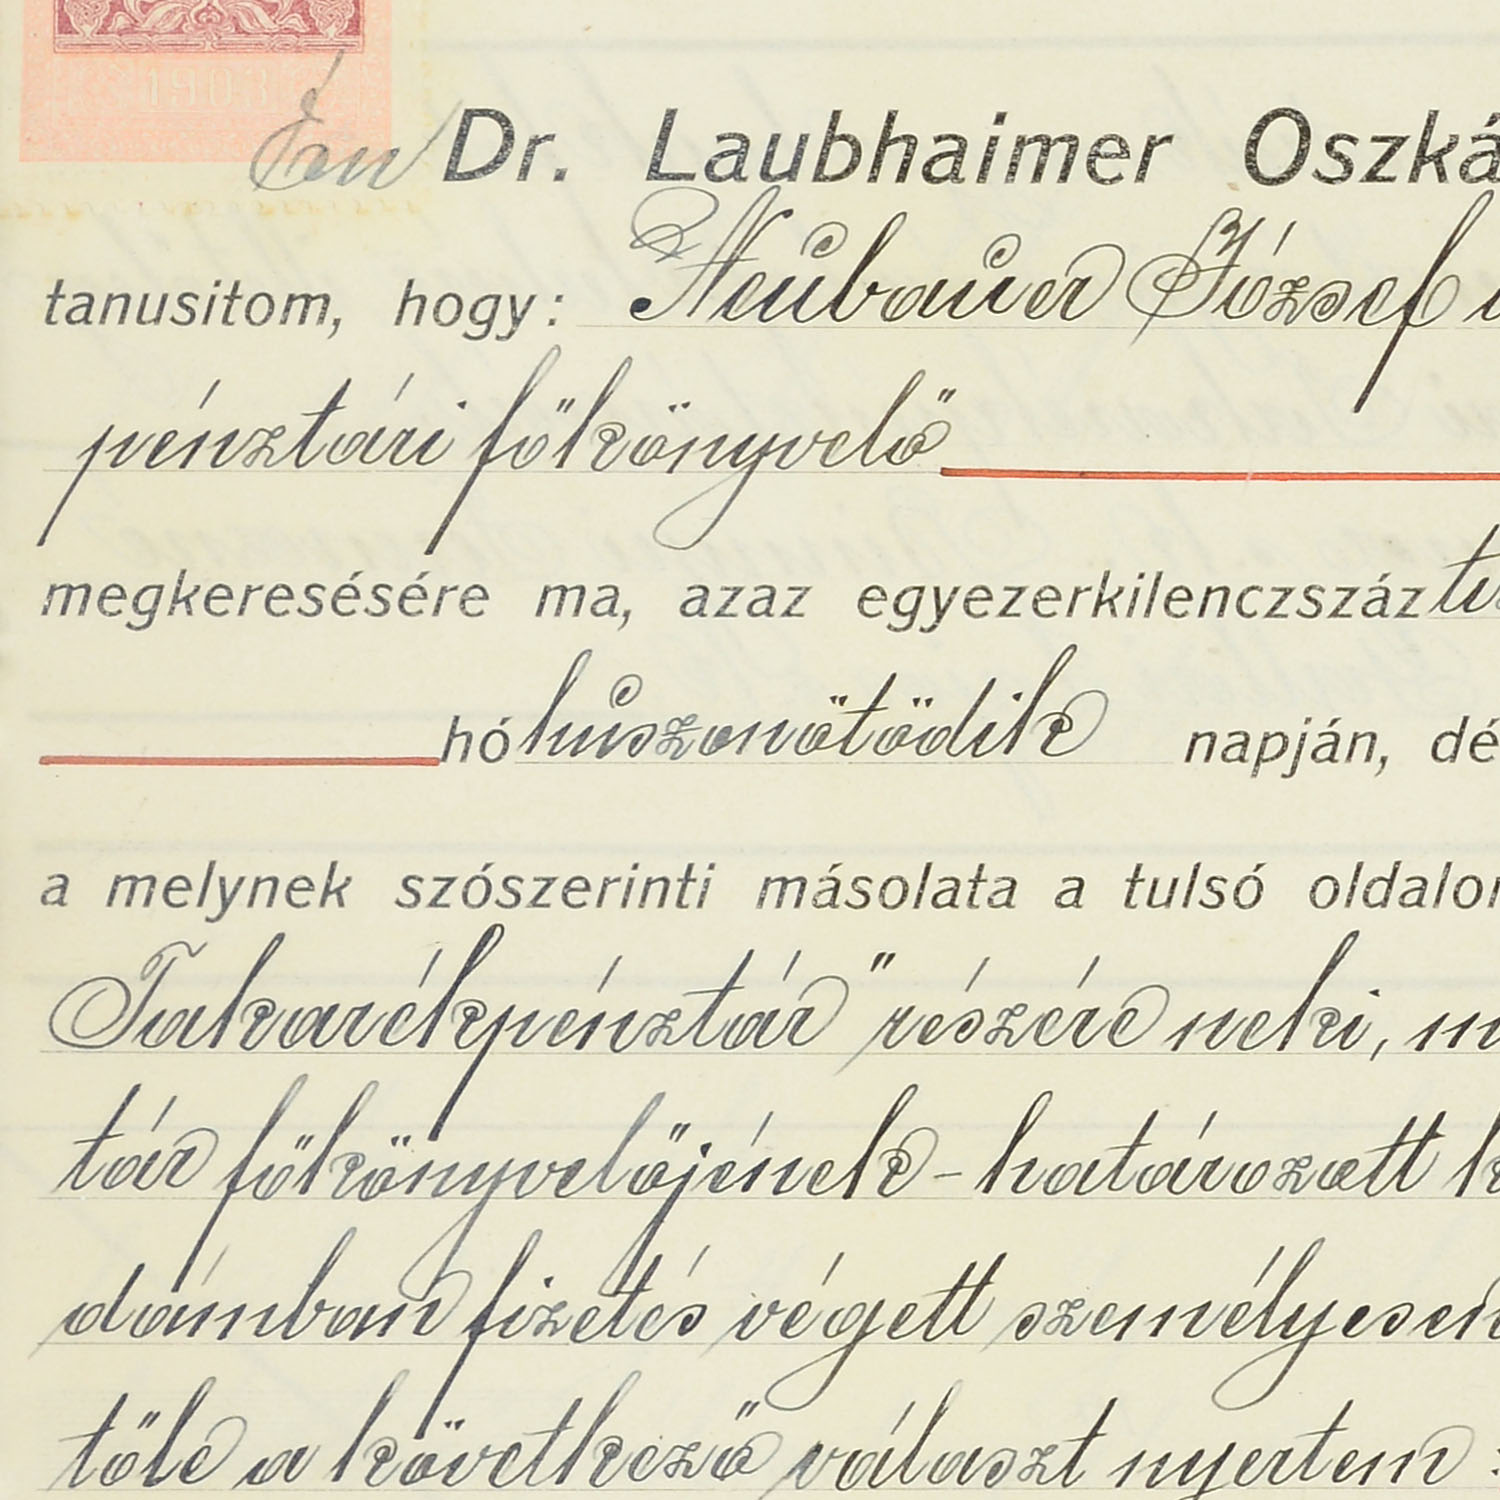 1903
Én Dr. Laubhaimer Oszká
tanusitom, hogy: Neubauer József
pénztári főkönyvelő
megkeresésére ma, azaz egyezerkilenczszáz
hó huszonötödik napján, dé
a melynek szószerinti másolata a tulsó oldalon
Takarékpénztár" részére neki, m
tár főkönyvelőjének - határozott k
dámban fizetés végett személyesen
tőle a következő választ nyertem: